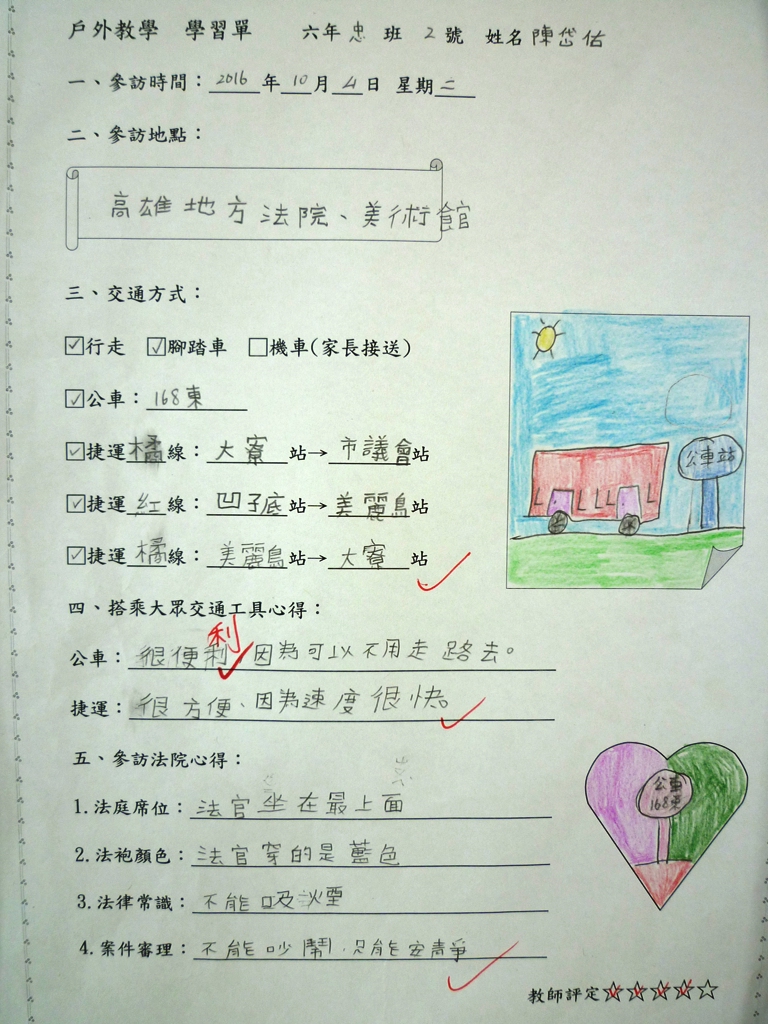 戶外教學 學習單 六年忠班 2號 姓名陳岱佑
一、參訪時間：2016年10月4日 星期二
二、參訪地點：
高雄地方法院、美術館
三、交通方式：
☑行走 ☑腳踏車 □機車(家長接送)
☑公車：168東
☑捷運橘線：大寮站→市議會站
☑捷運紅線：凹子底站→美麗島站
公車站
☑捷運橘線：美麗島站→大寮站
四、搭乘大眾交通工具心得：
利
公車：很便利,因為可以不用走路去。
捷運：很方便、因為速度很快。
五、參訪法院心得：
公車
168東
1.法庭席位：法官坐在最上面
2.法袍顏色：法官穿的是藍色
3.法律常識：不能吸煙
4.案件審理：不能吵鬧,只能安靜
教師評定☆☆☆☆☆